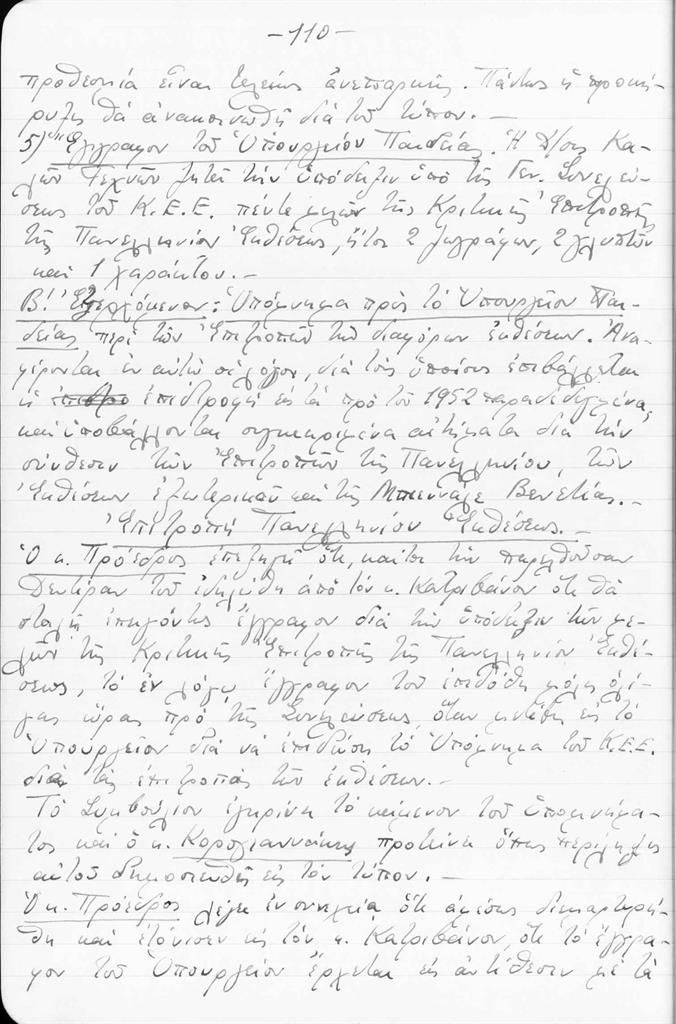 -110-
προθεσμία εἶναι τελείως ἀνεπαρκής. Πάντως ἡ προκή-
ρυξις θὰ ἀνακοινωθῇ διὰ τοῦ τύπου.-
5) Ἔγγραφον τοῦ Ὑπουργείου Παιδείας. Ἡ Δ/σις Κα-
λῶν Τεχνῶν ζητεῖ τὴν ὑπόδειξιν ὑπὸ τῆς Γεν. Συνελεύ-
σεως τοῦ Κ.Ε.Ε. πέντε μελῶν τῆς Κριτικῆς Ἐπιτροπῆς
τῆς Πανελληνίου Ἐκθέσεως, ἤτοι 2 ζωγράφων, 2 γλυπτῶν
καὶ 1 χαράκτου.-
Β! Ἐξερχόμενον: Ὑπόμνημα πρὸς τὸ Ὑπουργεῖον Παι-
δείας περὶ τῶν Ἐπιτροπῶν τῶν διαφόρων ἐκθέσεων. Ἀνα-
φέρονται ἐν αὐτῷ οἱ λόγοι, διὰ τοὺς ὁποίους ἐπιβάλλεται
ἡ ἐπιστροφὴ εἰς τὰ πρὸ τοῦ 1952 παραδεδεγμένα,
καὶ ὑποβάλλονται συγκεκριμένα αἰτήματα διὰ τὴν
σύνθεσιν τῶν Ἐπιτροπῶν τῆς Πανελληνίου, τῶν
Ἐκθέσεων ἐξωτερικοῦ καὶ τῆς Μπιεννάλε Βενετίας.-
Ἐπιτροπὴ Πανελληνίου Ἐκθέσεως.-
Ὁ κ. Πρόεδρος ἐπεξηγεῖ ὅτι, καίτοι τὴν παρελθοῦσαν
Δευτέραν τοῦ ἐδηλώθη ἀπὸ τὸν κ. Κατριβάνον ὅτι θὰ
σταλῇ ἐπειγόντως ἔγγραφον διὰ τὴν ὑπόδειξιν τῶν με-
λῶν τῆς Κριτικῆς Ἐπιτροπῆς τῆς Πανελληνίου Ἐκθέ-
σεως, τὸ ἐν λόγῳ ἔγγραφον τοῦ ἐπεδόθη μόλις ὀλί-
γας ὥρας πρὸ τῆς Συνελεύσεως, ὅταν μετέβη εἰς τὸ
Ὑπουργεῖον διὰ νὰ ἐπιδώσῃ τὸ Ὑπόμνημα τοῦ Κ.Ε.Ε.
διὰ τὰς ἐπιτροπὰς τῶν ἐκθέσεων.-
Τὸ Συμβούλιον ἐγκρίνει τὸ κείμενον τοῦ ὑπομνήμα-
τος καὶ ὁ κ. Κορογιαννάκης προτείνει ὅπως περίληψις
αὐτοῦ δημοσιευθῇ εἰς τὸν τύπον.-
Ὁ κ. Πρόεδρος λέγει ἐν συνεχείᾳ ὅτι ἀμέσως διεμαρτυρή-
θη καὶ ἐτόνισεν εἰς τὸν κ. Κατριβάνον, ὅτι τὸ ἔγγρα-
φον τοῦ Ὑπουργείου ἔρχεται εἰς ἀντίθεσιν μὲ τὰ